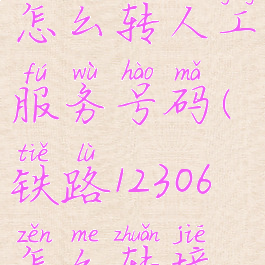 怎么转人工
fú wù hào mǎ
服务号码(
tiě lù
铁路12306
zěn me zhuǎn jiē
怎么转接